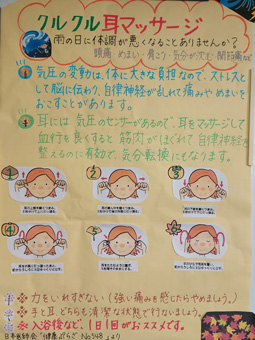 クルクル耳マッサージ
雨の日に体調が悪くなることありませんか？
頭痛・めまい・肩こり・気分が沈む・関節痛など
気圧の変動は、体に大きな負担なので、ストレスと
して脳に伝わり、自律神経が乱れて痛みやめまいを
おこすことがあります。
耳には気圧のセンサーがあるので、耳をマッサージして
血行を良くすると筋肉がほぐれて自律神経を
整えるのに有効で、気分転換にもなります。
1
2
3
4
5
6
※ 力をいれすぎない（強い痛みを感じたらやめましょう。）
※ 手と耳、どちらも清潔な状態で行ないましょう。
※ 入浴後など、1日1回がおススメです。
日本医師会「健康ぷらざ No.548」より